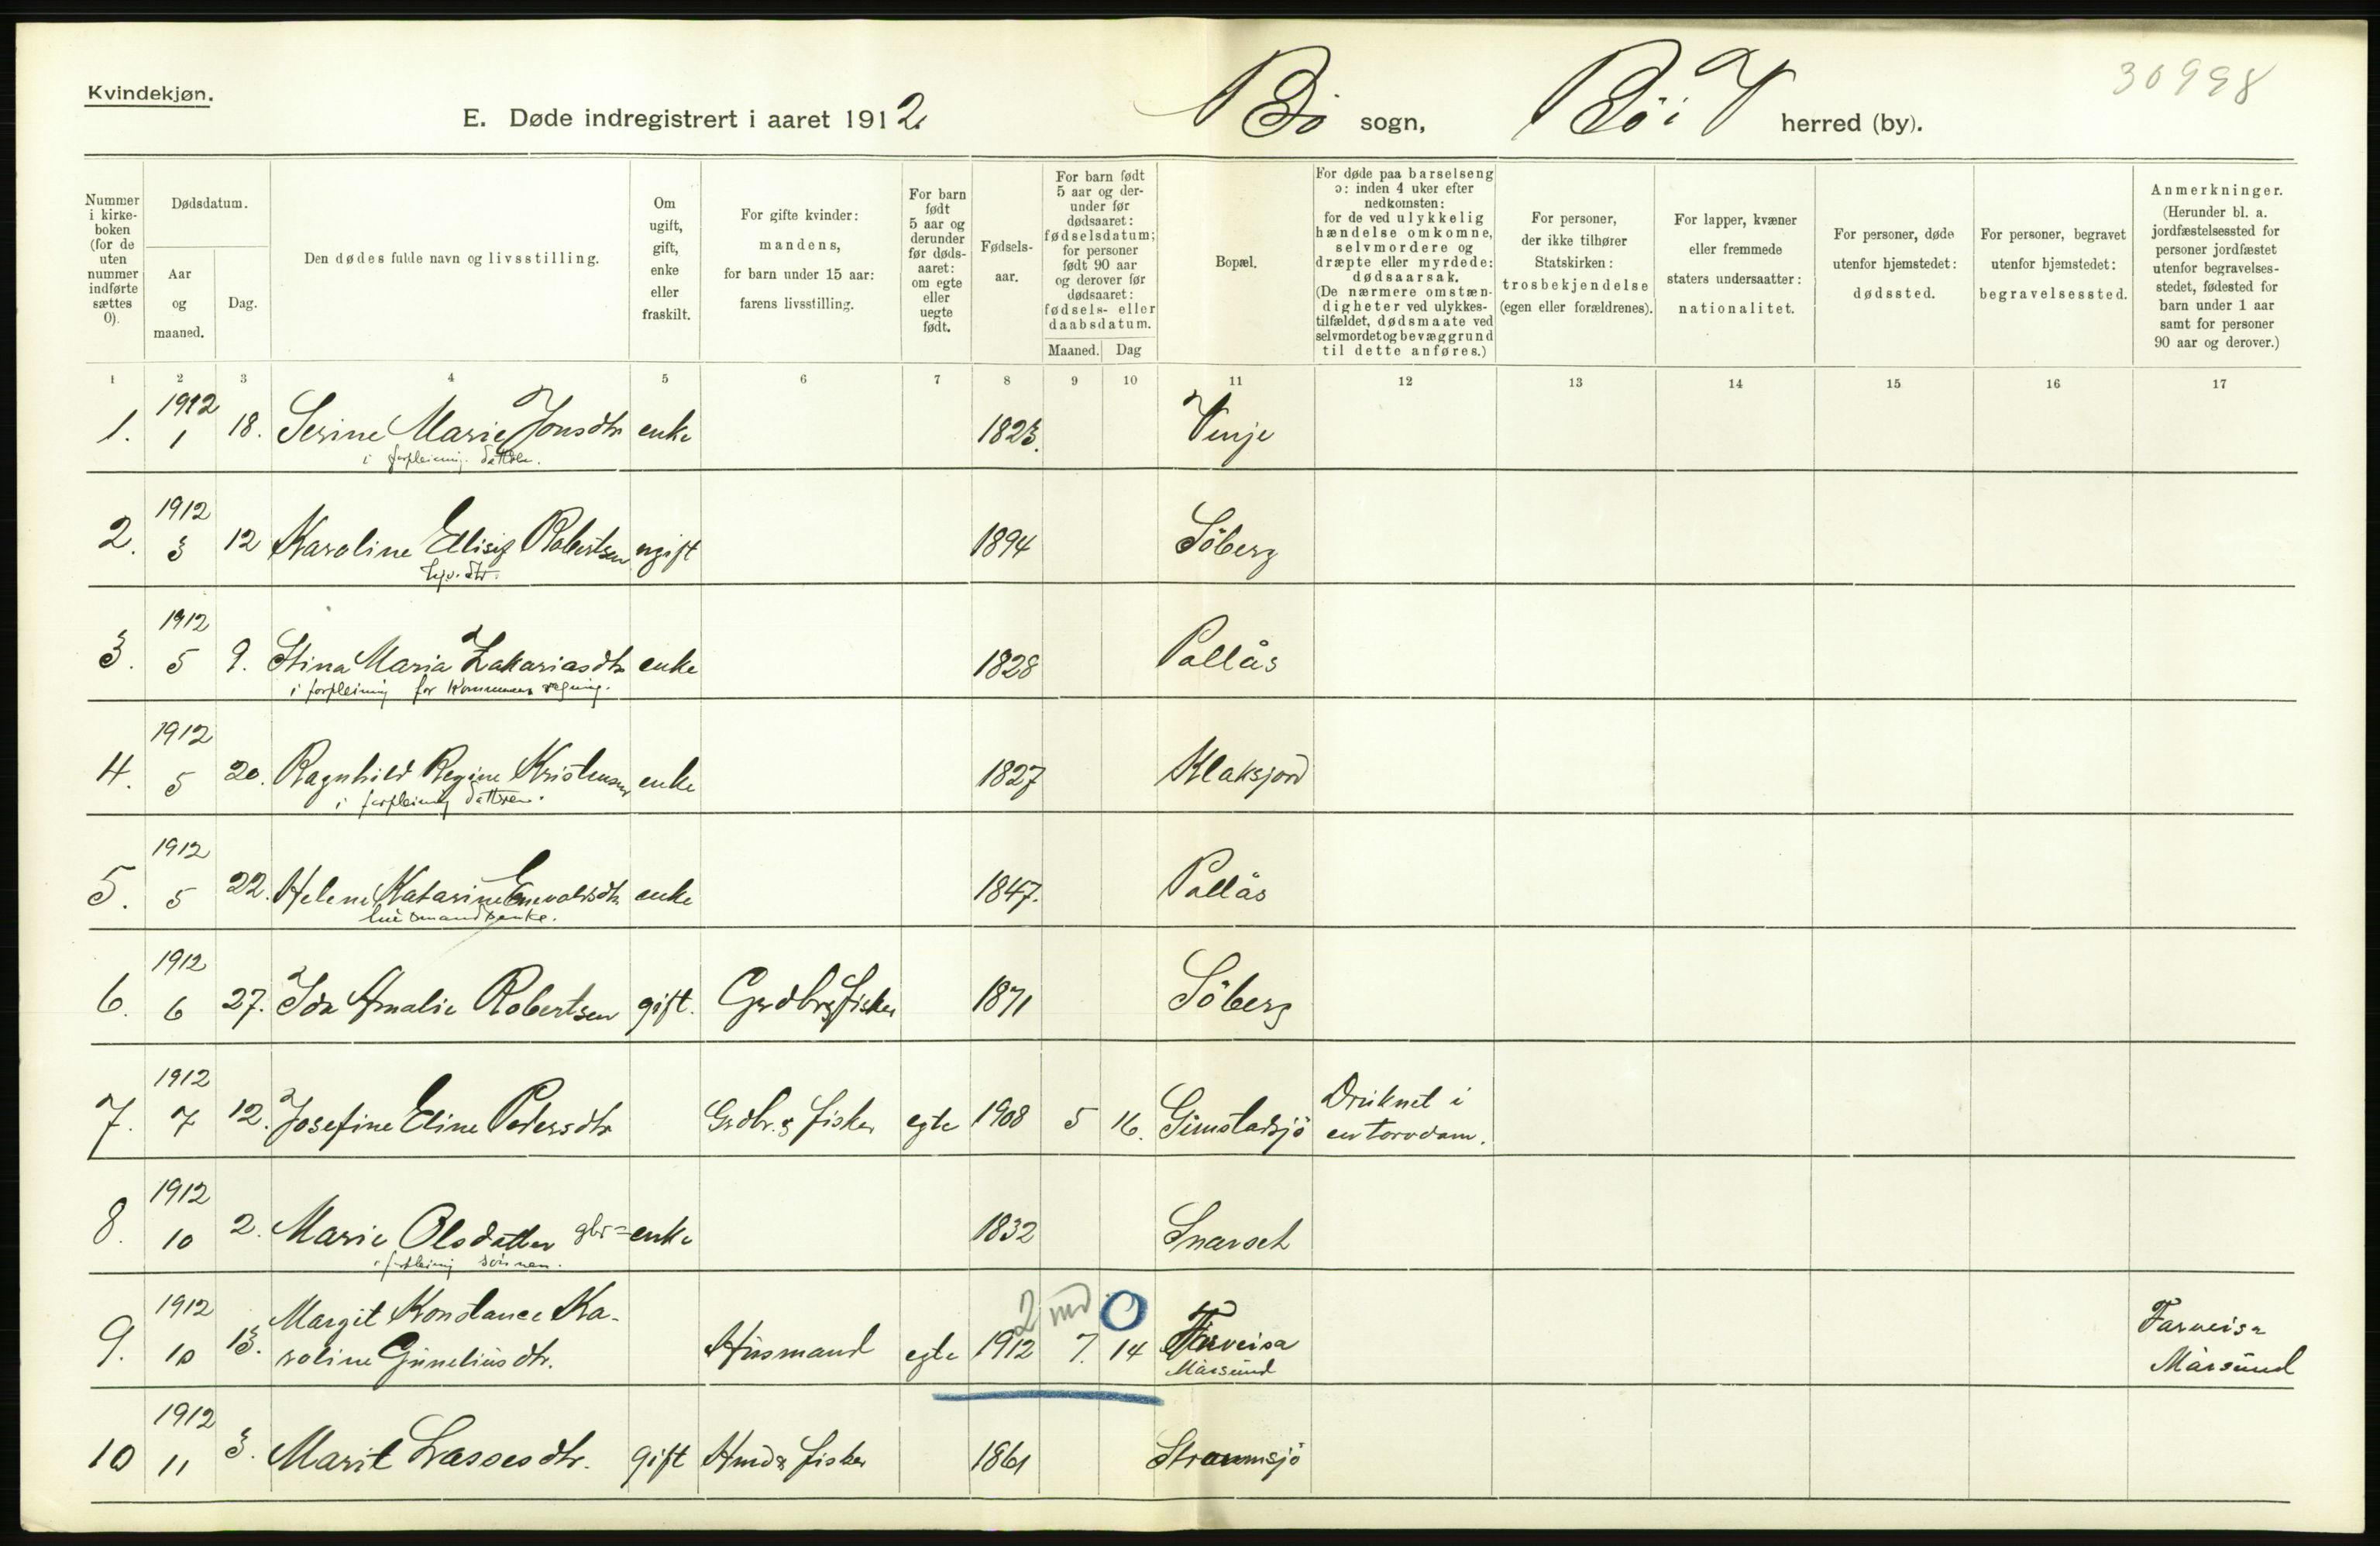 Kvindekjøn.
30998
E. Døde indregistrert i aaret 1912. Bö sogn, Bö i V herred (by).
Nummer i kirkeboken (for de uten nummer indførte sættes 0).
Dødsdatum.
Aar og maaned.
Dag.
Den dødes fulde navn og livsstilling.
Om ugift, gift, enke eller fraskilt.
For gifte kvinder: mandens, for barn under 15 aar: farens livsstilling.
For barn født 5 aar og derunder før dødsaaret: om egte eller uegte født.
Fødselsaar.
For barn født 5 aar og derunder før dødsaaret: fødselsdatum; for personer født 90 aar og derover før dødsaaret: fødsels- eller daabsdatum.
Maaned. Dag
Bopæl.
For døde paa barselseng ɔ: inden 4 uker efter nedkomsten: for de ved ulykkelig hændelse omkomne, selvmordere og dræpte eller myrdede: dødsaarsak. (De nærmere omstændigheter ved ulykkestilfældet, dødsmaate ved selvmordet og bevæggrund til dette anføres.)
For personer, der ikke tilhører Statskirken: trosbekjendelse (egen eller forældrenes).
For lapper, kvæner eller fremmede staters undersaatter: nationalitet.
For personer, døde utenfor hjemstedet: dødssted.
For personer, begravet utenfor hjemstedet: begravelsessted.
Anmerkninger. (Herunder bl. a. jordfæstelsessted for personer jordfæstet utenfor begravelsesstedet, fødested for barn under 1 aar samt for personer 90 aar og derover.)
1 2 3 4 5 6 7 8 9 10 11 12 13 14 15 16 17
1. 1912 1 18. Serine Marie Jonsdtr enke 1823. Vinje
i forpleining datteren.
2. 1912 3 12 Karoline Ellisif Robertsen ugift 1894 Söberg
3. 1912 5 9. Stina Maria Zakariasdtr enke 1828 Pallås
i forpleining for kommunens regning.
4. 1912 5 20. Ragnhild Regine Kristensen enke 1827 Klaksjord
i forpleining datteren.
5. 1912 5 22. Helene Katarine Enevaldsdtr enke 1847. Pallås
husmandsenke.
6. 1912 6 27. Ida Amalie Robertsen gift. Grdbr & fisker 1871 Söberg
7. 1912 7 12. Josefine Eline Pedersdtr Grdbr. & fisker egte 1908 5 16. Gimstadsjö Druknet i
en torvdam.
8. 1912 10 2. Marie Olsdatter gbr= enke 1832 Snarset
i forpleining sönnen.
9. 1912 10 13. Margit Konstance Ka-
roline Guneliusdtr. Husmand egte 1912 7. 14 Farveisa
Mårsund
2 md O
Farveisa
Mårsund
10 1912 11 3. Marit Lassesdtr. gift Hmd & fisker 1861 Straumsjö